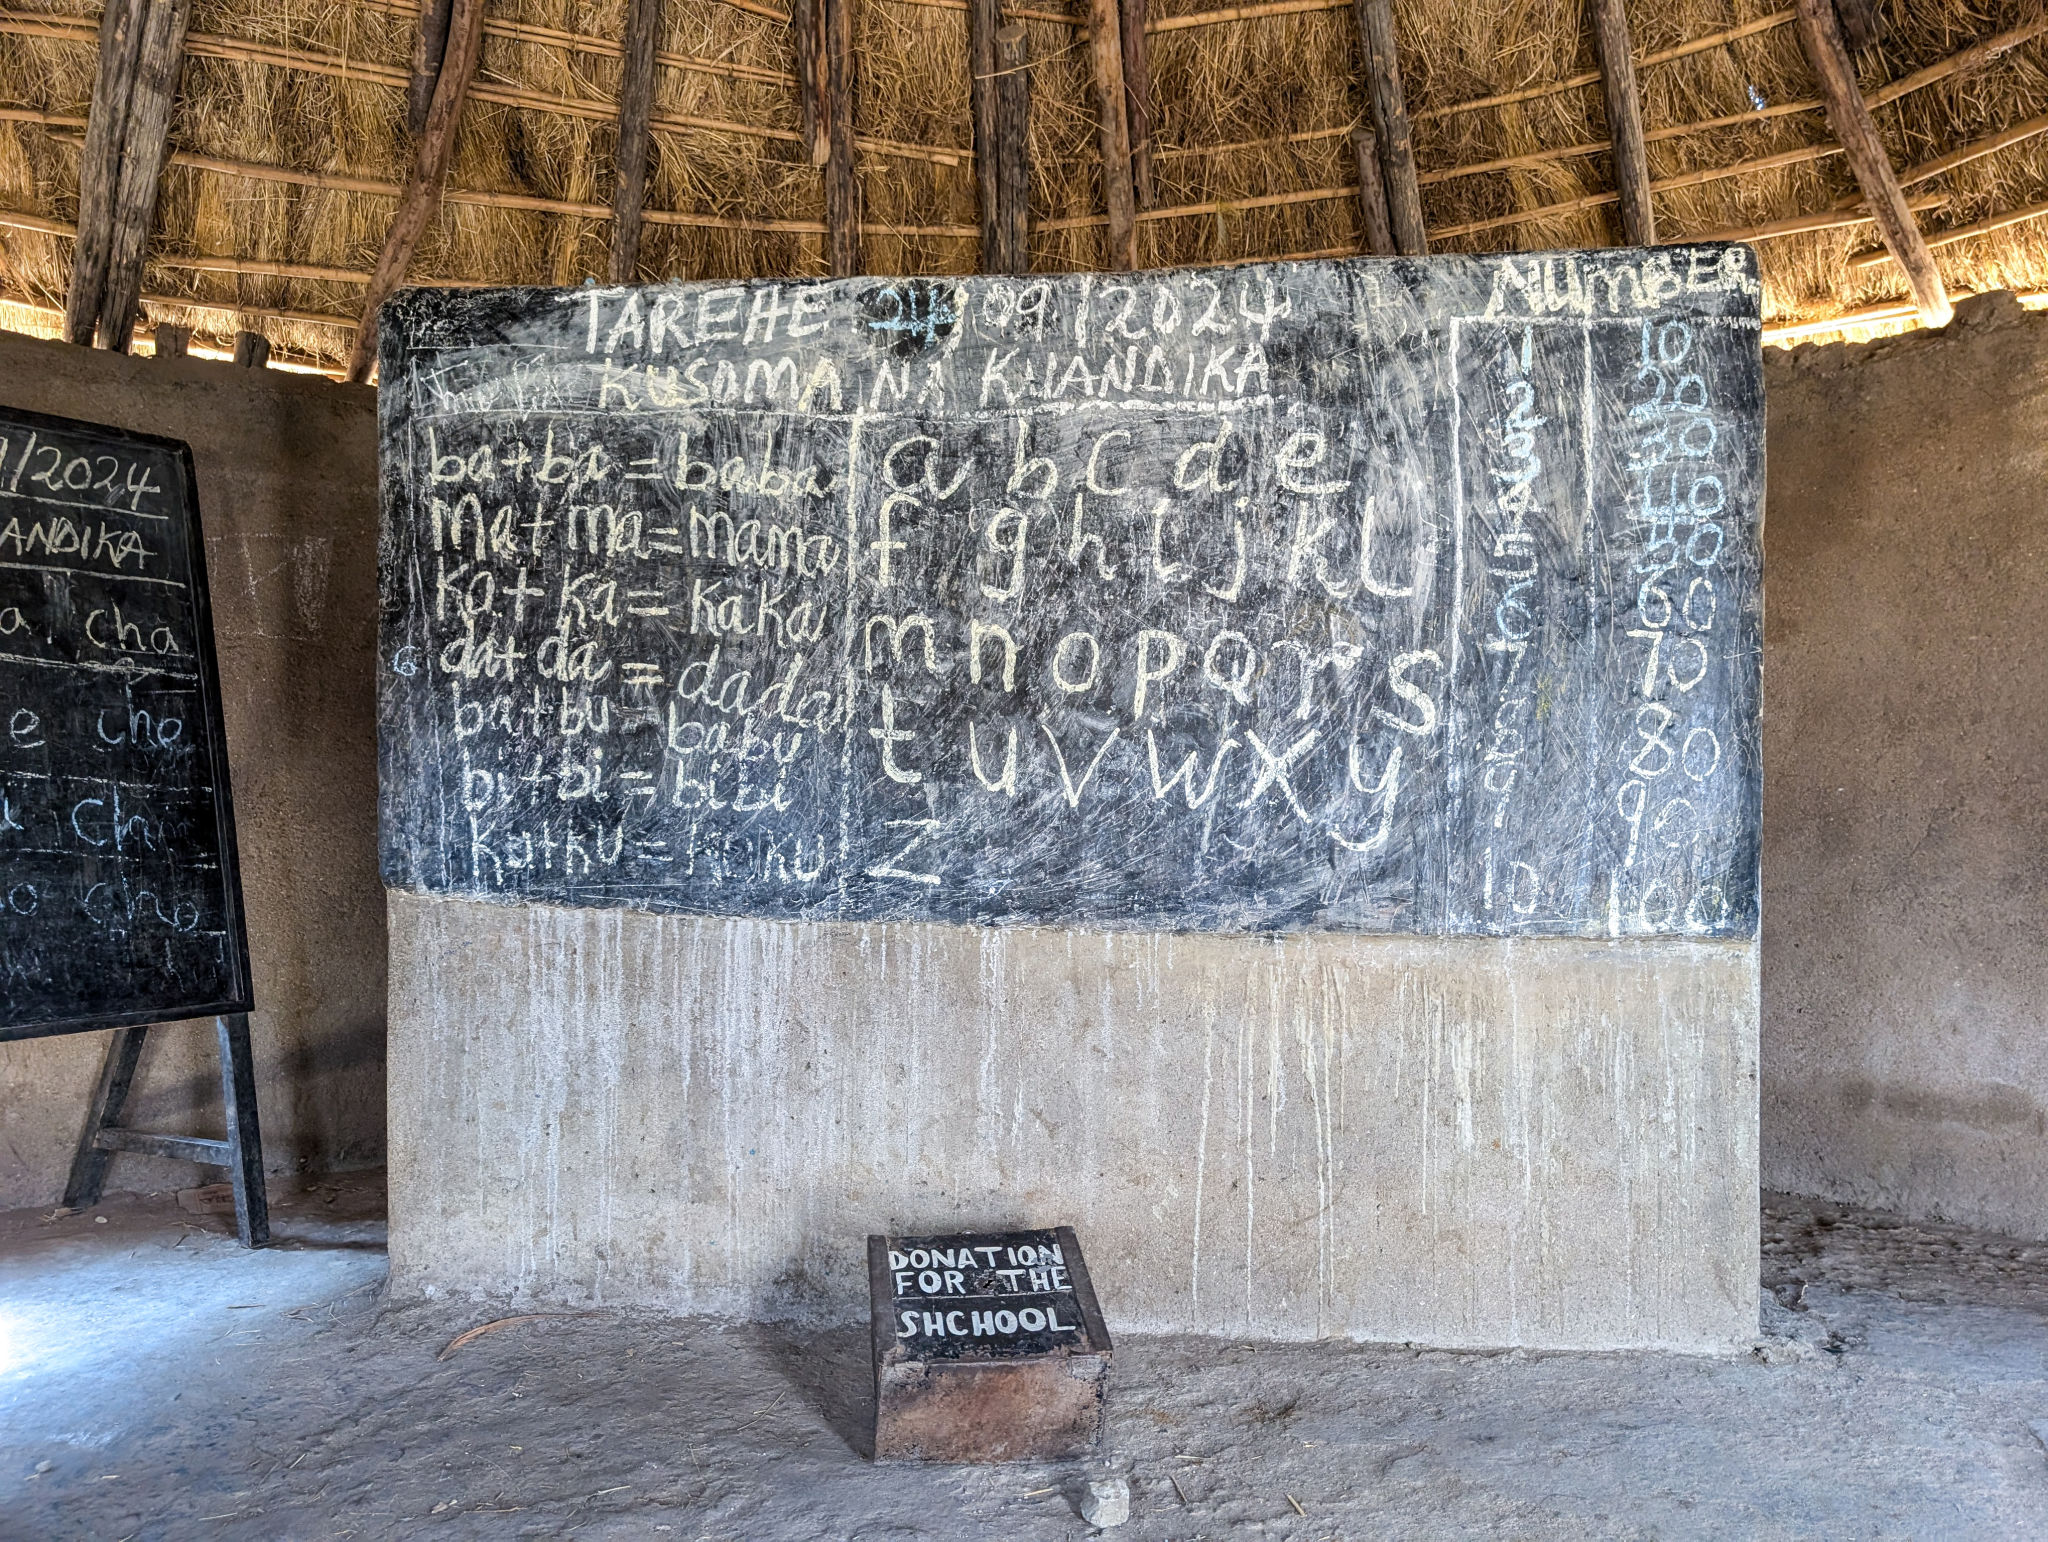 TAREHE 24/09/2024
KUSOMA NA KUANDIKA
ba+ba=baba
ma+ma=mama
ka+ka=kaka
da+da=dada
ba+bu=babu
bi+bi=bibi
ku+ku=kuku
a b c d e
f g h i j k l
m n o p Q r s
t u v w x y
z
NumBER
1 10
2 20
3 30
4 40
5 50
6 60
7 70
8 80
9 90
10 100
6
/2024
ANDIKA
a cha
e che
cho
DONATION
FOR THE
SHCHOOL